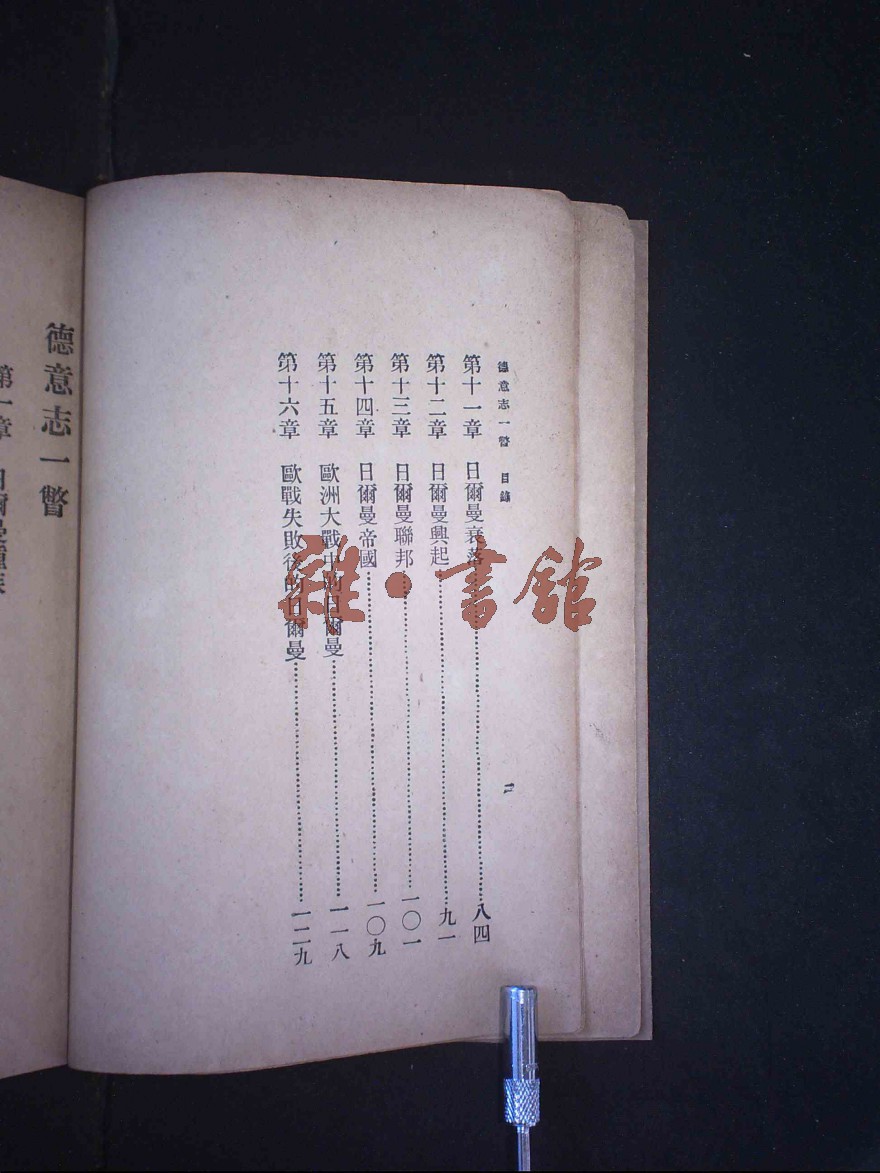 德意志一瞥 目錄 二
第十一章 日爾曼衰落…………八四
第十二章 日爾曼興起…………九一
第十三章 日爾曼聯邦…………一〇一
第十四章 日爾曼帝國…………一〇九
第十五章 歐洲大戰中的日爾曼…………一一八
第十六章 歐戰失敗後的日爾曼…………一二九
德意志一瞥
第一章 日爾曼種族
雜·書館